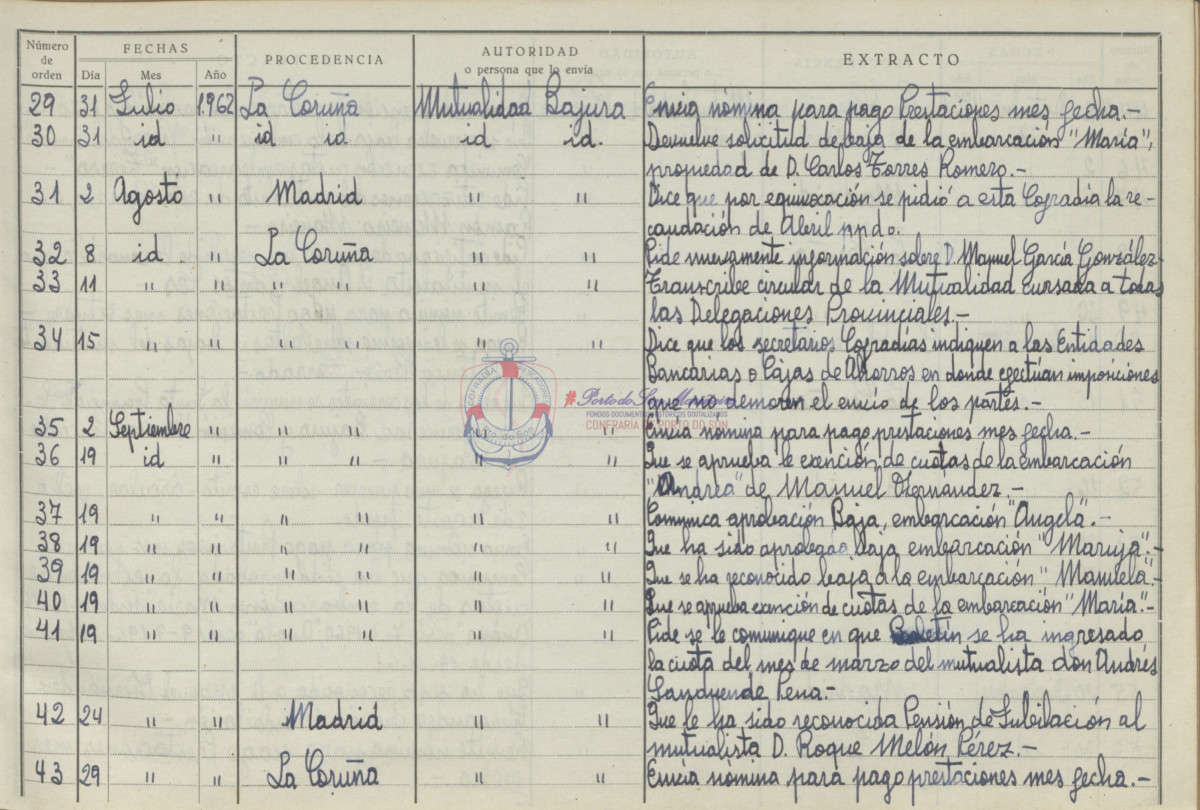 Número de orden FECHAS Día Mes Año PROCEDENCIA AUTORIDAD o persona que lo envía EXTRACTO
29 31 Julio 1.962 La Coruña Mutualidad Bajura Envia nómina para pago Prestaciones mes fecha.-
30 31 id " id id id id. Devuelve solicitud de baja de la embarcación "María",
propiedad de D. Carlos Torres Romero.-
31 2 Agosto " Madrid " " Dice que por equivocación se pidió a esta Cofradía la re-
caudación de Abril ppdo.
32 8 id. " La Coruña " " Pide nuevamente información sobre D. Manuel García González-
33 11 " " " " " " Transcribe circular de la Mutualidad cursada a todas
las Delegaciones Provinciales.-
34 15 " " " " " " Dice que los secretarios Cofradías indiquen a las Entidades
Bancarias o Cajas de Ahorros en donde efectúan imposiciones
que no demoren el envio de los partes.-
35 2 Septiembre " " " " " Envia nómina para pago prestaciones mes fecha.-
36 19 id " " " " " Que se aprueba le exención de cuotas de la embarcación
"Andrea" de Manuel Hernández.-
37 19 " " " " " Comunica aprobación Baja, embarcación "Angela".-
38 19 " " " " " " Que ha sido aprobado baja embarcación "Maruja".-
39 19 " " " " " " Que se ha reconocido baja a la embarcación "Manuela".-
40 19 " " " " " " Que se aprueba exención de cuotas de la embarcación "María".-
41 19 " " " " " " Pide se le comunique en que Boletín se ha ingresado
la cuota del mes de marzo del mutualista don Andrés
Pena.-
42 24 " " Madrid " " Que le ha sido reconocida Pensión de Jubilación al
mutualista D. Roque Melón Pérez.-
43 29 " " La Coruña " " Envia nomina para pago prestaciones mes fecha.-
FONDOS DOCUMENTAIS HISTÓRICOS DIGITALIZADOS
CONFRARÍA DE PORTO DO SON